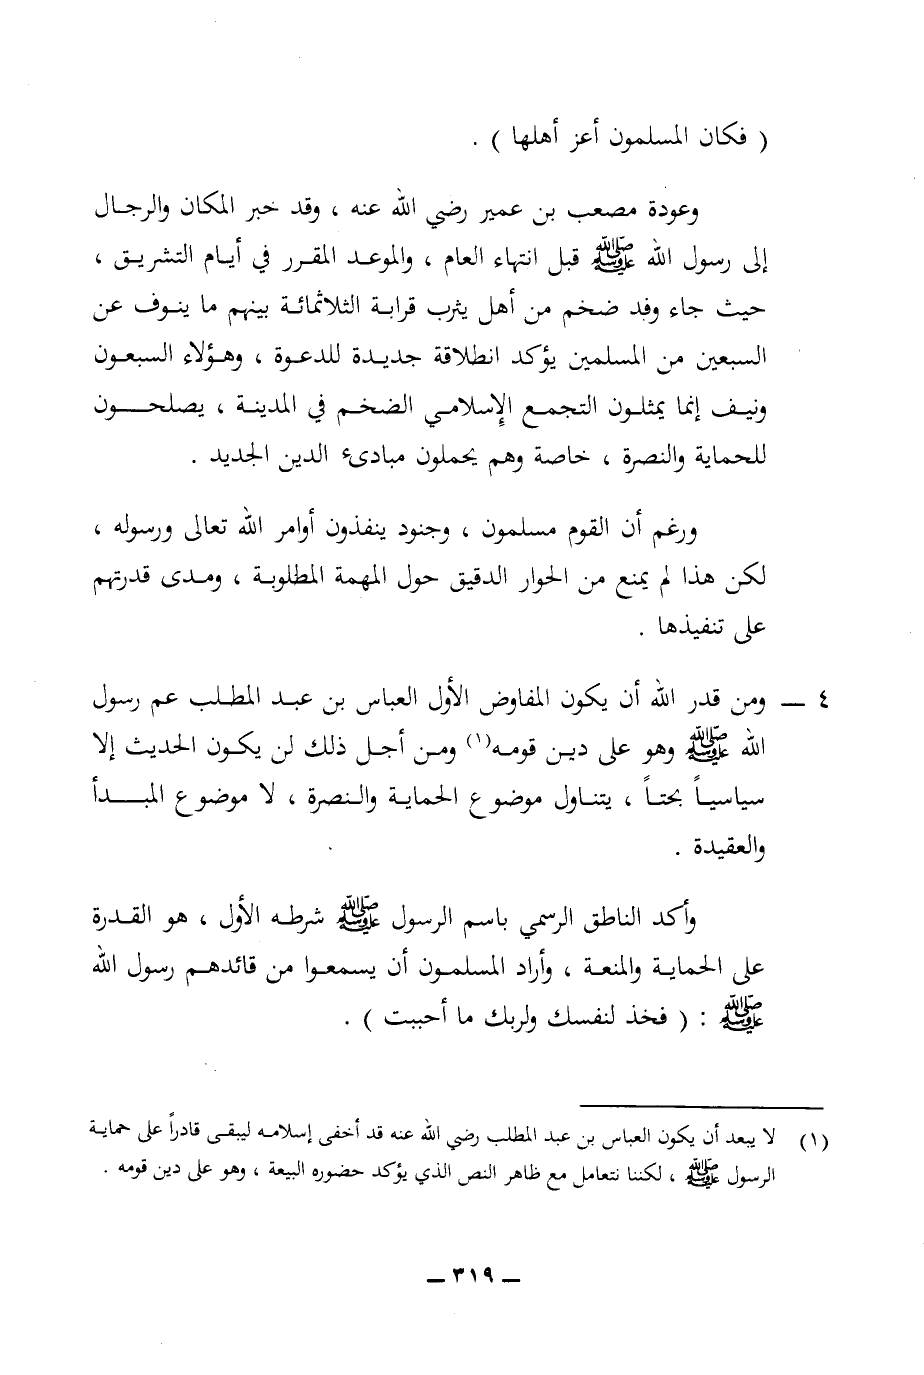 ( فكان المسلمون أعز أهلها ) .
وعودة مصعب بن عمير رضي الله عنه ، وقد خبر المكان والرجال
إلى رسول الله ﷺ قبل انتهاء العام ، والموعد المقرر في أيام التشريق ،
حيث جاء وفد ضخم من أهل يثرب قرابة الثلاثمائة بينهم ما ينوف عن
السبعين من المسلمين يؤكد انطلاقة جديدة للدعوة ، وهؤلاء السبعون
ونيف إنما يمثلون التجمع الإسلامي الضخم في المدينة ، يصلحون
للحماية والنصرة ، خاصة وهم يحملون مبادىء الدين الجديد .
ورغم أن القوم مسلمون ، وجنود ينفذون أوامر الله تعالى ورسوله ،
لكن هذا لم يمنع من الحوار الدقيق حول المهمة المطلوبة ، ومدى قدرتهم
على تنفيذها .
٤ – ومن قدر الله أن يكون المفاوض الأول العباس بن عبد المطلب عم رسول
الله ﷺ وهو على دين قومه(١) ومن أجل ذلك لن يكون الحديث إلا
سياسياً بحتاً ، يتناول موضوع الحماية والنصرة ، لا موضوع المبدأ
والعقيدة .
وأكد الناطق الرسمي باسم الرسول ﷺ شرطه الأول ، هو القدرة
على الحماية والمنعة ، وأراد المسلمون أن يسمعوا من قائدهم رسول الله
ﷺ : ( فخذ لنفسك ولربك ما أحببت ) .
(١) لا يبعد أن يكون العباس بن عبد المطلب رضي الله عنه قد أخفى إسلامه ليبقى قادراً على حماية
الرسول ﷺ ، لكننا نتعامل مع ظاهر النص الذي يؤكد حضوره البيعة ، وهو على دين قومه .
– ٣١٩ –